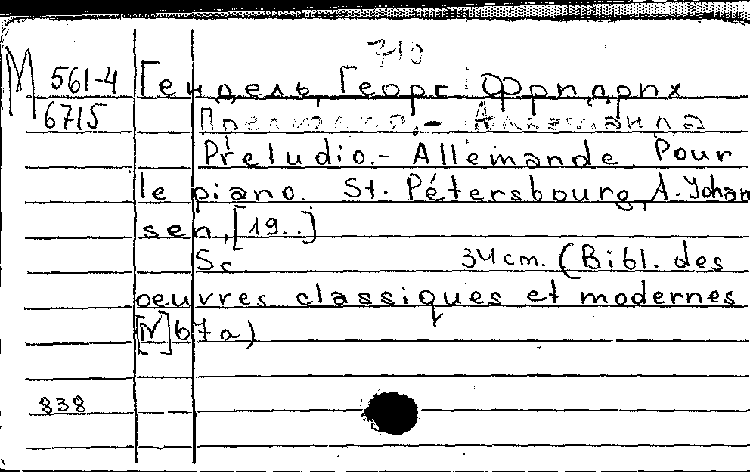 710
М 561-4 Гендель, Георг Фридрих
6715 Прелюдия.- Аллеманда
Preludio.- Allemande. Pour
le piano. St. Pétersbourg, A. Johan
sen, [19..]
Sc 34cm. (Bibl. des
oeuvres classiques et modernes
[N] 67a)
838